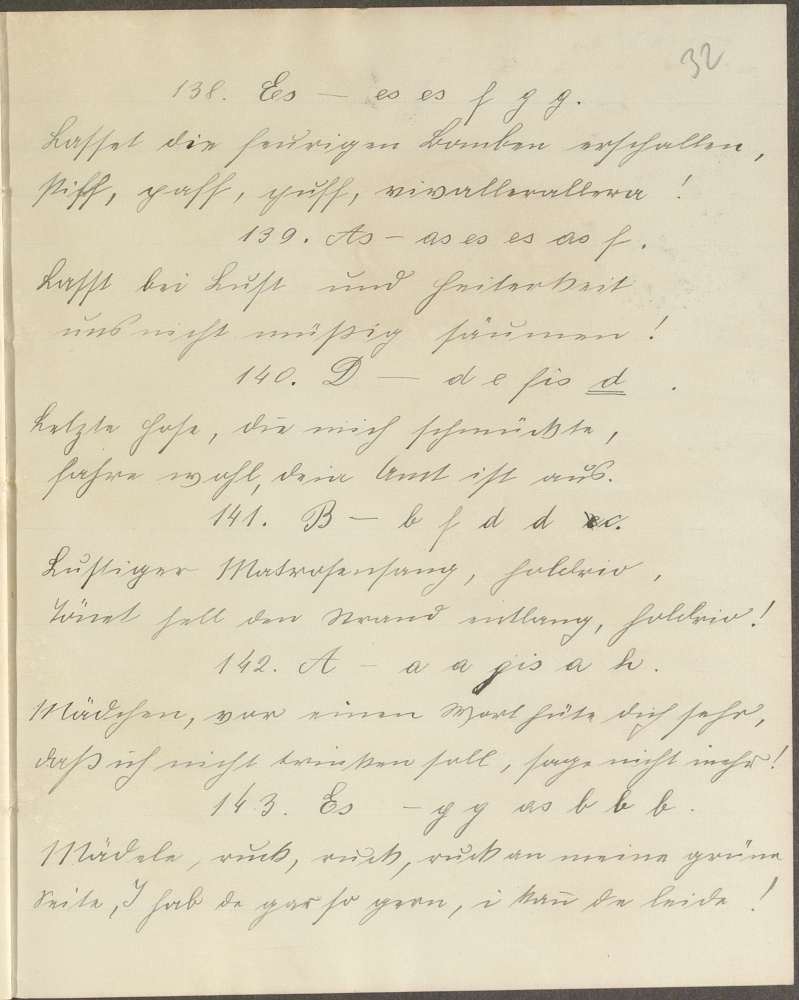 32
138. Es — es es f g g.
Lasset die feurigen Bomben erschallen,
Piff, paff, puff, vivallerallera!
139. As – as es es as f.
Lasst bei Lust und Heiterkeit
uns nicht müßig säumen!
140. D — d e fis d.
Letzte Hose, die mich schmückte,
fahre wohl, dein Amt ist aus.
141. B — b f d d c.
Lustiger Matrosensang, holdrio,
Tönet hell den Strand entlang, holdrio!
142. A – a a gis a h.
Mädchen, vor einem Wort hüte dich sehr,
daß ich nicht trinken soll, sage nicht mehr!
143. Es – g g as b b b.
Mädele, ruck, ruck, ruck an meine grüne
Seite, I hab de gar so gern, i kan̄ de leide!